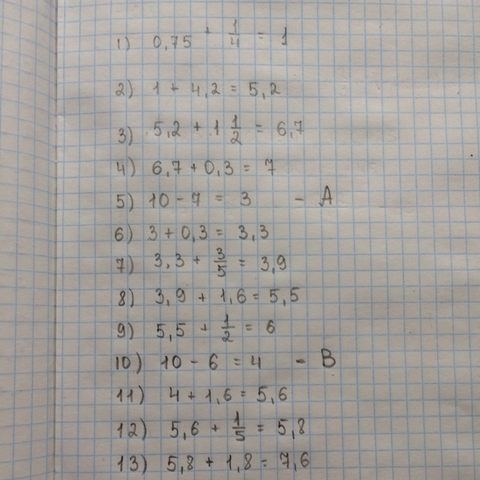 1) 0,75 + 1/4 = 1
2) 1 + 4,2 = 5,2
3) 5,2 + 1 1/2 = 6,7
4) 6,7 + 0,3 = 7
5) 10 - 7 = 3 - A
6) 3 + 0,3 = 3,3
7) 3,3 + 3/5 = 3,9
8) 3,9 + 1,6 = 5,5
9) 5,5 + 1/2 = 6
10) 10 - 6 = 4 - B
11) 4 + 1,6 = 5,6
12) 5,6 + 1/5 = 5,8
13) 5,8 + 1,8 = 7,6